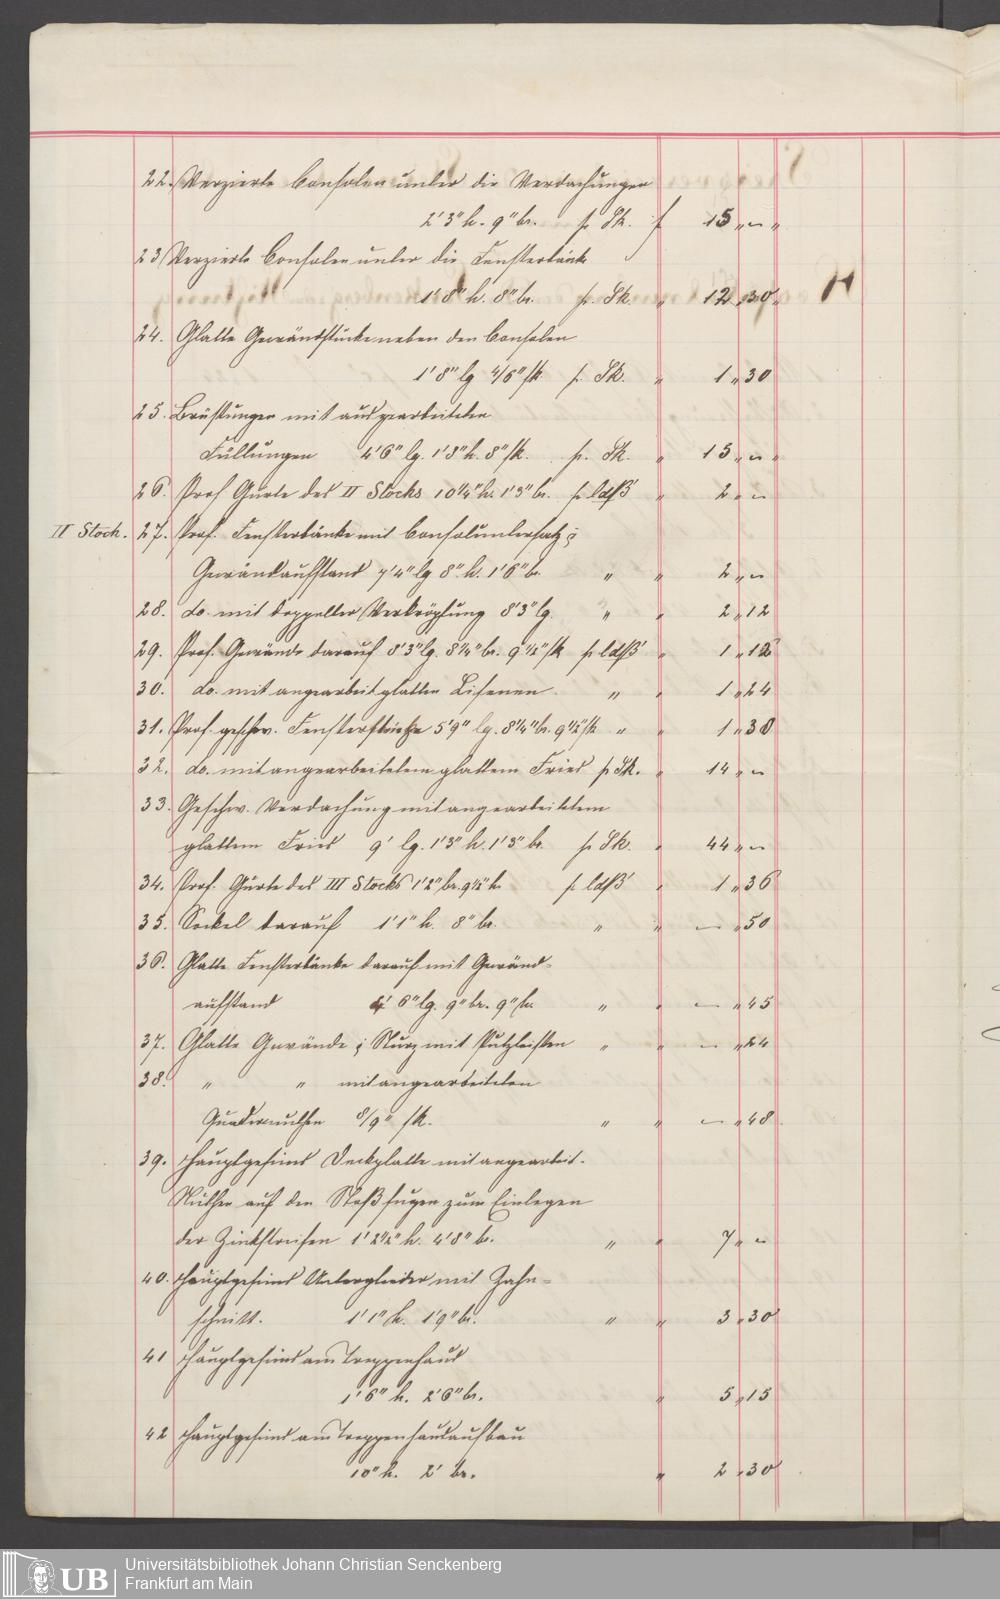 22. Verzierte Consolen unter die Verdachungen
2' 3" h. 9" br. p. Stk. f 15 „ – „
23 Verzierte Consolen unter die Fensterbänke
1' 8" h. 8" br. p. Stk. „ 12 „ 30 „
24. Glatte Gewändstücke neben den Consolen
1' 8" lg 4/6" stk. p. Stk. „ 1 „ 30
25. Brüstungen mit ausgearbeiteten
Füllungen 4' 6" lg. 1' 8" h. 8" stk. p. Stk. „ 15 „ – „
26. Prof Gurte des II Stocks 10 1/4" h. 1' 3" br. p ldfß' „ 2 „ –
II Stock. 27. Prof. Fensterbänke mit Consoluntersatz &
Gewändaufstand 7' 4" lg 8" h. 1' 6" br. „ „ 2 „ –
28. do. mit doppelter Verkröpfung 8' 3" lg. „ „ 2 „ 12
29. Prof. Gewände darauf 8' 3" lg. 8 1/4" br. 9 1/2" stk p ldfß' „ 1 „ 12
30. do. mit angearbeit glatten Lisenen „ „ 1 „ 24
31. Prof. geschw. Fensterstürze 5' 9" lg. 8 1/4" br. 9 1/2" stk „ „ 1 „ 30
32. do. mit angearbeitetem glattem Fries p Stk. „ 14 „ –
33. Geschw. Verdachung mit angearbeitetem
glattem Fries 9' lg. 1' 3" h. 1' 3" br. p Stk. „ 44 „ –
34. Prof. Gurte des III Stocks 1' 2" br. 9 1/2" h. p ldfß' „ 1 „ 36
35. Sockel darauf 1' 1" h. 8" br. „ „ – „ 50
36. Glatte Fensterbänke darauf mit Gewänd-
aufstand 4' 6" lg. 9" br. 9" h. „ „ – „ 45
37. Glatte Gewände & Sturz mit Putzleisten „ „ – „ 24
38. „ „ mit angearbeiteten
Quadernuthen 8/9" stk. „ „ – „ 48
39. Hauptgesims Deckplatte mit angearbeit.
Nuthen auf den Stoßfugen zum Einlegen
der Zinkstreifen 1' 2 1/2" h. 4' 8" br. „ „ 7 „ –
40. Hauptgesims Unterglieder mit Zahn-
schnitt. 1' 1" h. 1' 9" br. „ „ 3 „ 30
41 Hauptgesims am Treppenhaus
1' 6" h. 2' 6" br. „ 5 „ 15
42 Hauptgesims am Treppenhausaufbau
10" h. 2' br. „ 2 „ 30
UB
Universitätsbibliothek Johann Christian Senckenberg
Frankfurt am Main